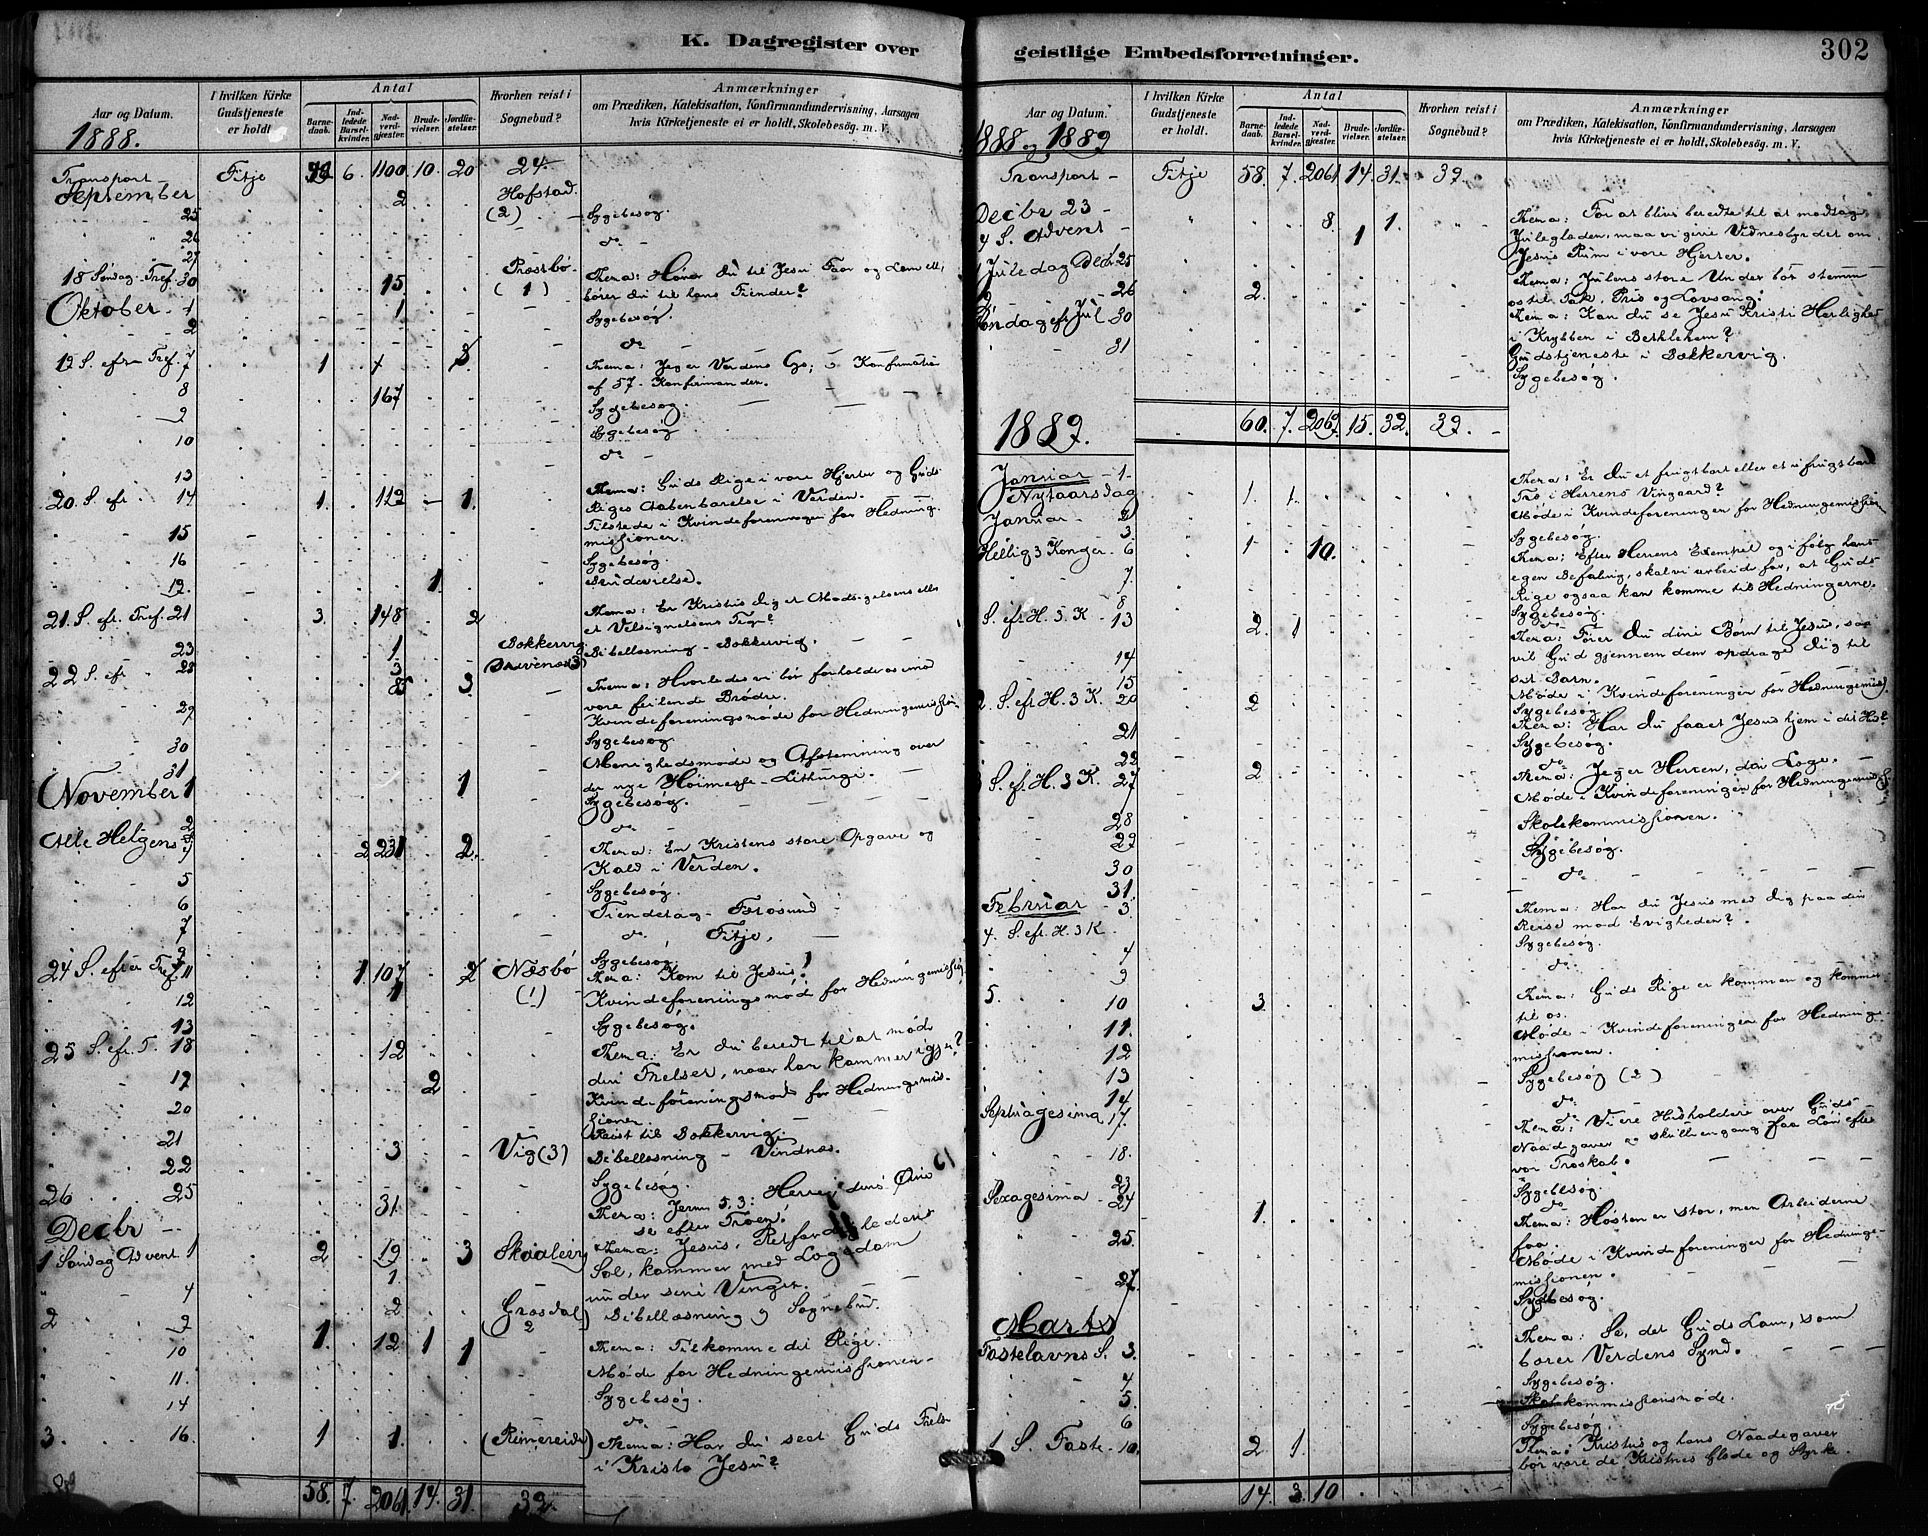 K. Dagregister over
Aar og Datum.
1888.
I hvilken Kirke
Gudstjeneste
er holdt.
Antal
Barne-
daab.
Ind-
ledede
Barsel-
kvinder.
Nad-
verd-
gjester.
Brude-
vielser.
Jordfæ-
stelser.
Hvorhen reist i
Sognebud?
Anmærkninger
om Prædiken, Katekisation, Konfirmandundervisning, Aarsagen
hvis Kirketjeneste ei er holdt, Skolebesøg. m. V.
Transport Fitje 6. 1100. 10. 20 24
September 2 Hofstad.
25 (2) Sygebesøg.
26 do
27
18 Søndag. Tref. 30 15 (1) Thema: Hører du til Jesu Faar og Lam eller
hører du til hans Fiender?
Oktober 1 1 Sygebesøg.
2 do
19 S. efr Tref. 7 1 3 Thema: Jeg er Verdens Lys; Konfirmation
af 57 Konfirmander.
8 167 Sygebesøg.
9 Sygebesøg
10 do
13
20. S. efr 14 1. 112 1. Thema: Guds Rige i vore Hjerter og Guds
Riges Aabenbarelse i Verden.
15 Tilstede i Kvindeforeningen for Hedning-
missionen.
16 Sygebesøg
1. Brudevielse.
21. S. efr. Tref. 21 3. 148 2 Thema: Er Kristus dig et Modsigelsens eller
et Velsignelsens Tegn?
23 1 Bokkervig Bibellæsning - Bokkervig.
22 S. efr 28 3 85 3. Thema: Hvorledes vi bør forholde os imod
vore feilende Brødre.
29 Kvindeforeningsmøde for Hedningemission
30 Sygebesøg
31 Menighedsmøde og Afstemning over
November 1 1 den nye Høimesse-Lithurgi.
Sygebesøg.
2 do
Alle Helgens 2 231 2. Thema: En Kristens store Opgave og
Kald i Verden.
5 Sygebesøg.
6 Tiendetag -
7 do Fitje,
9 Sygebesøg
24 S. efter Tref. 11 1 107 2 Næsbø Thema: Kom til Jesus!
12 1 (1) Kvindeforeningsmøde for Hedningemission
13 Sygebesøg.
25 S. efr. T. 18 12 Thema: Er du beredt til at møde
din Frelser, naar han kommer igjen?
19 2 Kvindeforeningsmøde for Hedningemis-
20 sionen.
Reist til Bokkervig.
21 3 Vig (3) Bibellæsning - Vindnæs.
22 Sygebesøg.
26 25 31. Thema: Jerm 5,3: Herre, dine Øine
se efter Troen!
Decbr
1 Søndag Advent 1 2 19 3 Thema: Jesus, Retfærdighedens
Sol, kommer med Lægedom
4 1. under sine Vinger.
2 9 2 Grosdal 2 Bibellæsning og Sognebud.
1. 12 1 1 Thema: Tilkomme dit Rige.
10 Møde for Hedningemissionen
11. Sygebesøg.
14 do
3. 16. 1 1. (Rimereide) Thema: Har du seet Guds Frelse
i Kristo Jesu?
58. 7. 2061. 14. 31. 39.
geistlige Embedsforretninger.
302
Aar og Datum.
1888 og 1889
I hvilken Kirke
Gudstjeneste
er holdt.
Antal
Barne-
daab.
Ind-
ledede
Barsel-
kvinder.
Nad-
verd-
gjester.
Brude-
vielser.
Jordfæ-
stelser.
Hvorhen reist i
Sognebud?
Anmærkninger
om Prædiken, Katekisation, Konfirmandundervisning, Aarsagen
hvis Kirketjeneste ei er holdt, Skolebesøg. m. V.
Transport - Fitje 58. 7. 2061. 14. 31. 39.
Decbr 23 8. 1. Thema: For at blive beredte til at modtage
4 S. Advent 1 Juleglæden, maa vi give Vidnesbyrdet om
Jesus Rum i vore Hjerter.
1 Juledag Decbr 25 Thema: Julens store Under bør stemme
26 2. os til Tak, Pris og Lovsang.
Søndag eft Jul 30 Thema: Kan du se Jesu Kristi Herlighed
i Krybben i Bethlehem?
31 Gudstjeneste i Bakkervig.
Sygebesøg.
60. 7. 2069. 15. 32. 39.
1889.
Januar 1. Thema: Er du et frugtbart eller et ufrugtbart
Nytaarsdag 1. 1. Træ i Herrens Vingaard?
Januar 2 Møde i Kvindeforeningen for Hedningemission
3. Sygebesøg.
Hellig 3 Konger. 6 1 10. Thema: Efter Herrens Exempel og ifølg hans
egen Befaling, skal vi arbeide for, at Guds
7. Rige ogsaa kan komme til Hedningerne.
8 Sygebesøg.
do
S. eft H. 3. K 13 2 1 Thema: Fører du dine Børn til Jesus, saa
vil Gud gjennem dem opdrage dig til
sit Barn.
14 Møde i Kvindeforeningen for Hedningemiss.
15 Sygebesøg
2. S. eft H. 3 K. 20 2 Thema: Har du faaet Jesus hjem i dit Hus?
21 Sygebesøg.
22 do
3 S. ef. H. 3 K. 27 2 Thema: Jeg er Herren, din Læge.
28 Møde i Kvindeforeningen for Hedningemiss.
29 Skolekommissionen.
30 Sygebesøg.
31. do
Februar 3. Thema: Har du Jesus med dig paa din
4. S. eft. H. 3 K. Reise mod Evigheden?
4 Sygebesøg.
9 do
5. 10 3. Thema: Guds Rige er kommen og kommer
til os.
11. Møde i Kvindeforeningen for Hedninge-
missionen.
12 Sygebesøg (2)
13 do
14 do
Septuagesima 17. Thema: Vi ere Husholdere over Guds
Naadegaver og skulle engang faa Løn efter
vor Troskab.
18. Sygebesøg.
23 do
Sexagesima 24 1. Thema: Høsten er stor, men Arbeiderne
faa.
25. Møde i Kvindeforeninger for Hedninge-
missionen.
27. Sygebesøg.
Marts
Fastelavns S. 3. Thema: Se, det Guds Lam, som
bærer Verdens Synd.
4 Sygebesøg.
5. Skolekommissionsmøde.
6 Sygebesøg
1 S. Faste 10. 2 1. Thema: Kristus og hans Naadegaver
bør være de Kristnes Glæde og Styrke.
14. 3. 10